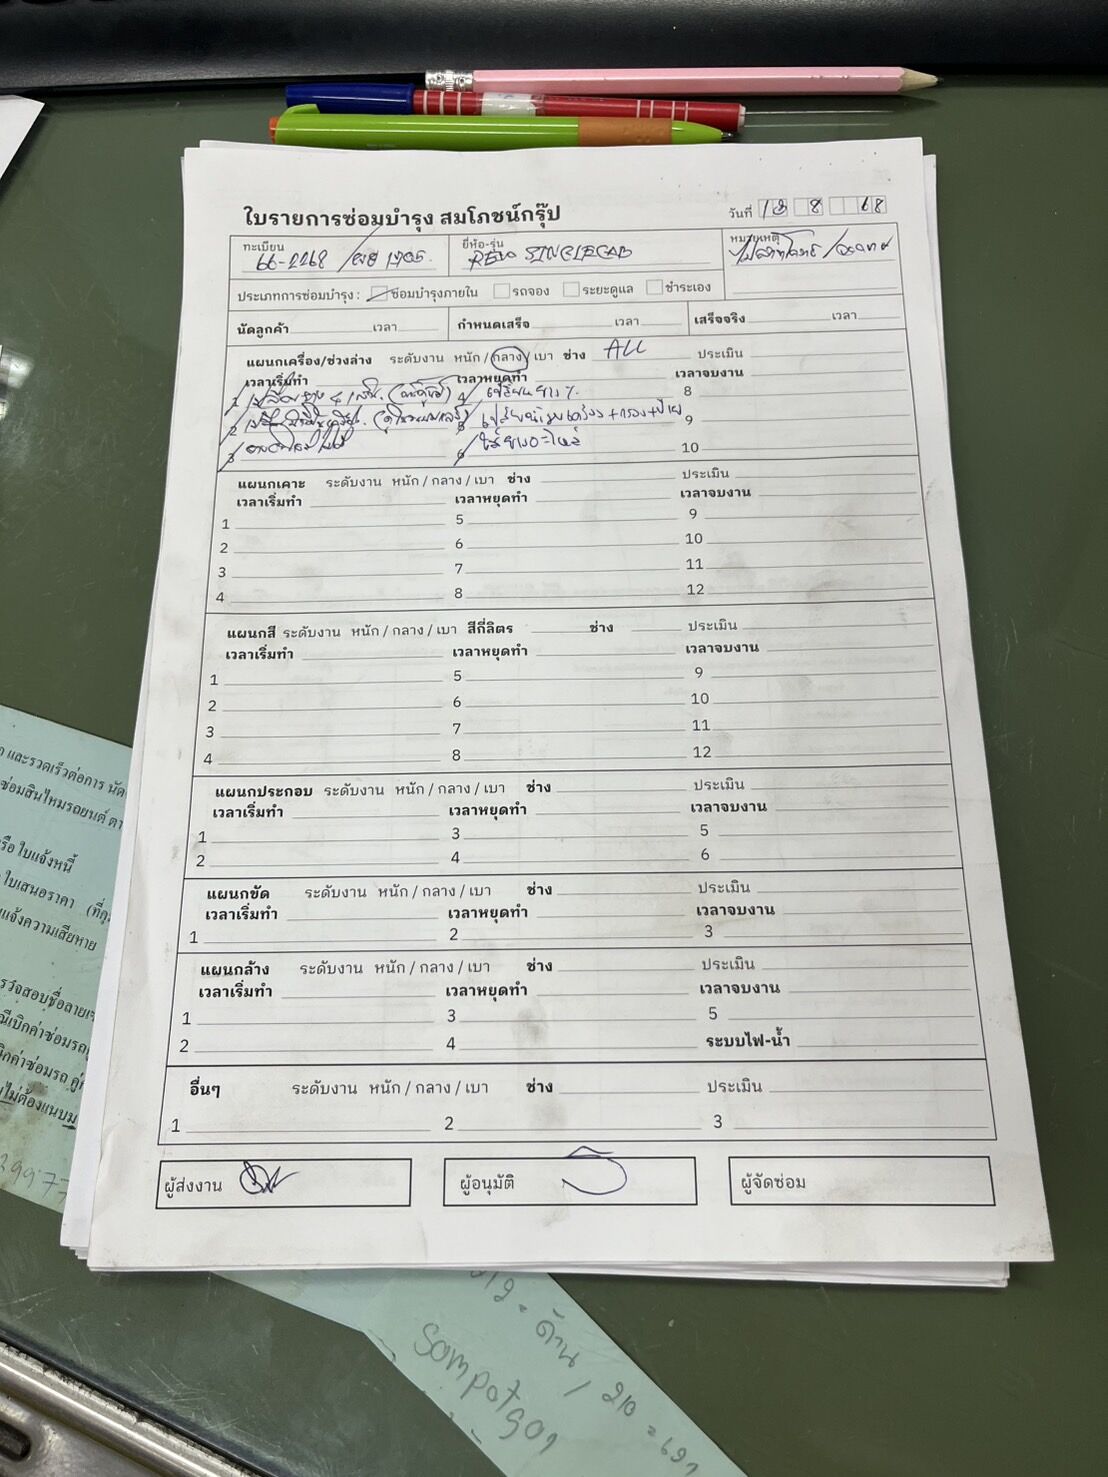 ใบรายการซ่อมบำรุง สมโภชน์กรุ๊ป
วันที่ 13 8 68
ทะเบียน 66-2268 /
ยี่ห้อ-รุ่น REVO SINGLECAB
หมายเหตุ
ประเภทการซ่อมบำรุง : ซ่อมบำรุงภายใน รถจอง ระยะดูแล ชำระเอง
นัดลูกค้า เวลา กำหนดเสร็จ เวลา เสร็จจริง เวลา
แผนกเครื่อง/ช่วงล่าง ระดับงาน หนัก / กลาง / เบา ช่าง ALL ประเมิน
เวลาเริ่มทำ เวลาหยุดทำ เวลาจบงาน
1 เปลี่ยนยาง 4 เส้น 4 8
2 5 เปลี่ยนน้ำมันเครื่อง + กรอง 9
3 6 ใส่ยางอะไหล่ 10
แผนกเคาะ ระดับงาน หนัก / กลาง / เบา ช่าง ประเมิน
เวลาเริ่มทำ เวลาหยุดทำ เวลาจบงาน
1 5 9
2 6 10
3 7 11
4 8 12
แผนกสี ระดับงาน หนัก / กลาง / เบา สีกี่ลิตร ช่าง ประเมิน
เวลาเริ่มทำ เวลาหยุดทำ เวลาจบงาน
1 5 9
2 6 10
3 7 11
4 8 12
แผนกประกอบ ระดับงาน หนัก / กลาง / เบา ช่าง ประเมิน
เวลาเริ่มทำ เวลาหยุดทำ เวลาจบงาน
1 3 5
2 4 6
แผนกขัด ระดับงาน หนัก / กลาง / เบา ช่าง ประเมิน
เวลาเริ่มทำ เวลาหยุดทำ เวลาจบงาน
1 2 3
แผนกล้าง ระดับงาน หนัก / กลาง / เบา ช่าง ประเมิน
เวลาเริ่มทำ เวลาหยุดทำ เวลาจบงาน
1 3 5
2 4 ระบบไฟ-น้ำ
อื่นๆ ระดับงาน หนัก / กลาง / เบา ช่าง ประเมิน
1 2 3
ผู้ส่งงาน ผู้อนุมัติ ผู้จัดซ่อม
และรวดเร็วต่อการ นัด
ซ่อมสินไหมรถยนต์ ตา
รือ ใบแจ้งหนี้
ใบเสนอราคา
แจ้งความเสียหาย
รวจสอบชื่อลายเซ
ณีเบิกค่าซ่อมรถ
บิกค่าซ่อมรถ คู่
ไม่ต้องแนบ
29977
212 = ด้าน / 210 = 691